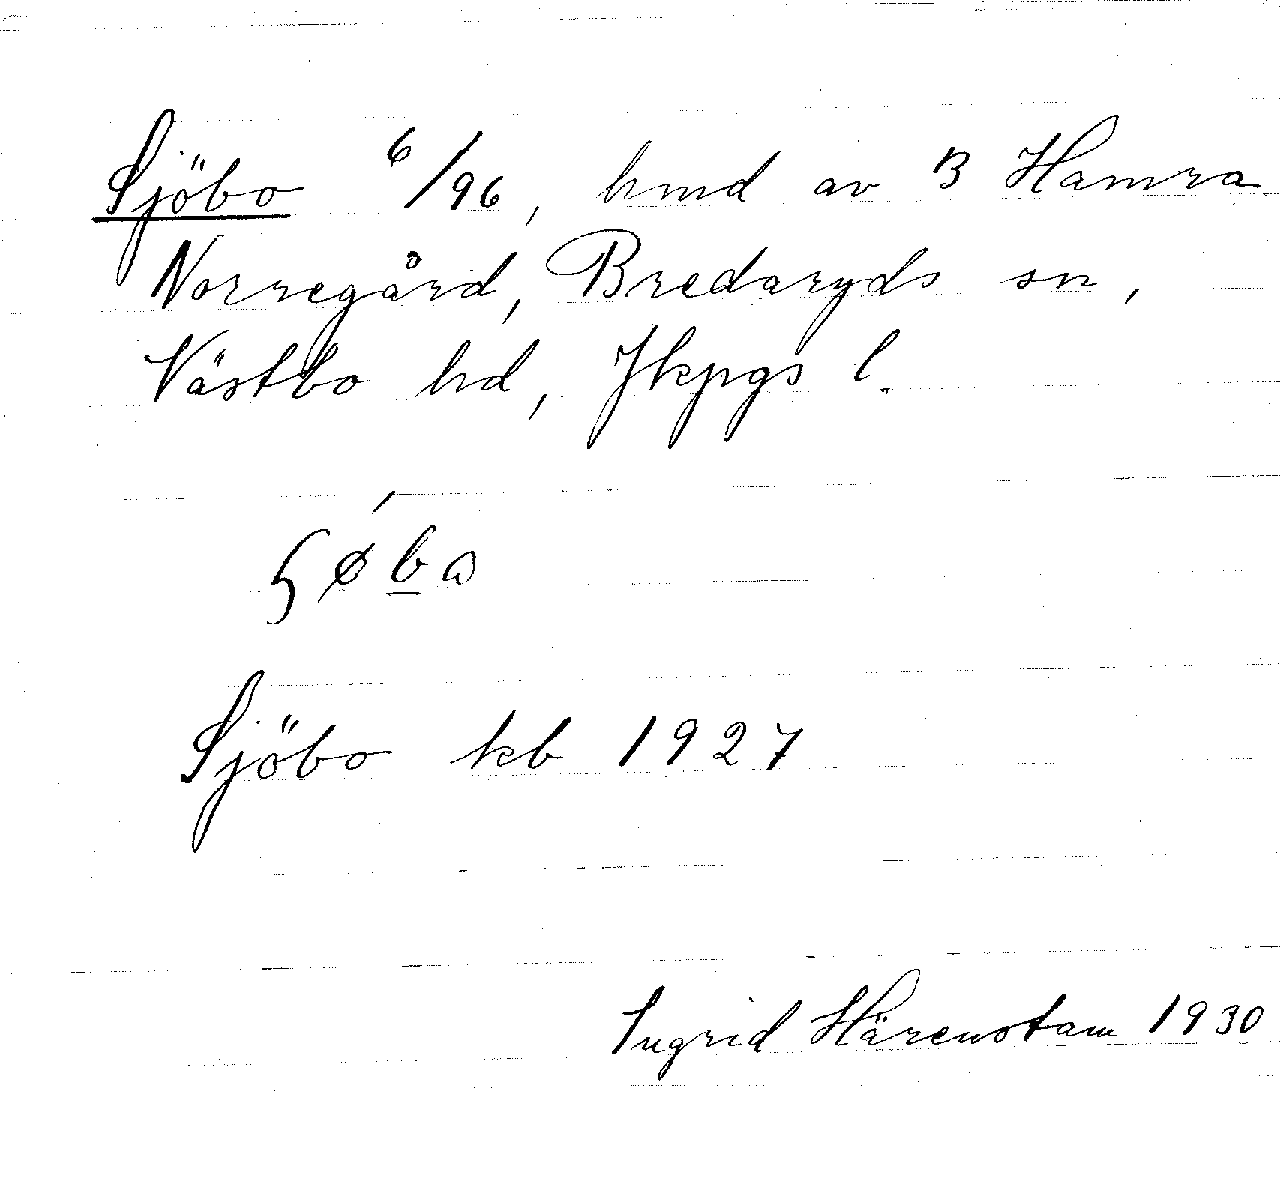 Sjöbo 6/96, hmd av B Hamra
Norregård, Bredaryds sn,
Västbo hd, Jkpgs l.
Sjöbo kb 1927
Ingrid Härenstam 1930